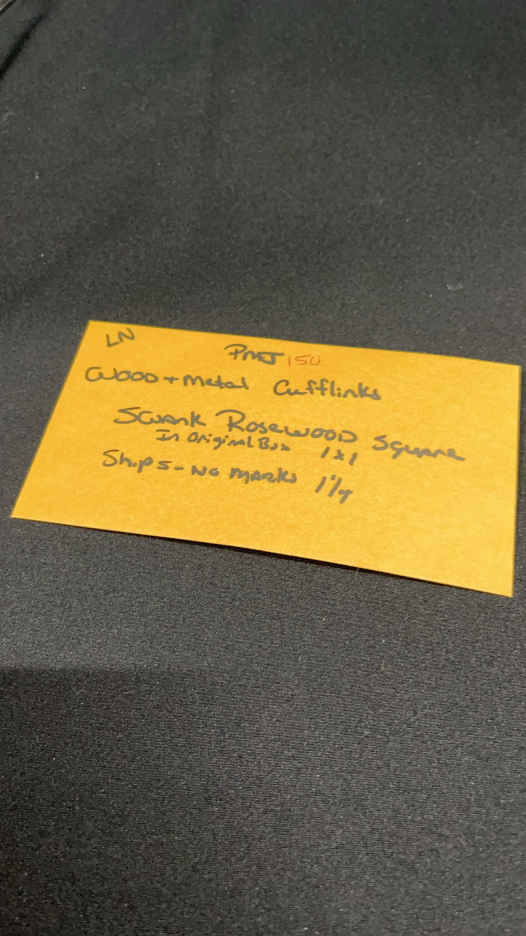 LN
PMJ 150
Wood + Metal Cufflinks
Swank Rosewood Square
In Original Box 1x1
Ships - No MARKS 1 1/4